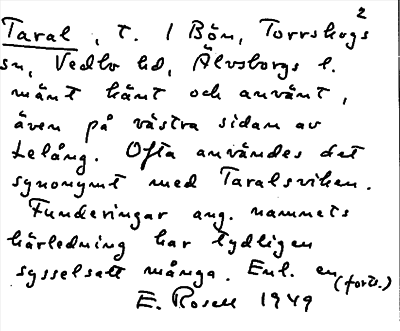 2
Taral, t. / Bön, Torrskogs
sn, Vedbo hd, Älvsborgs l.
mänt känt och använt,
även på västra sidan av
Lelång. Ofta användes det
synonymt med Taralsviken.
Funderingar ang. namnets
härledning har tydligen
sysselsatt många. Enl. en
(forts.)
E. Rosell 1949